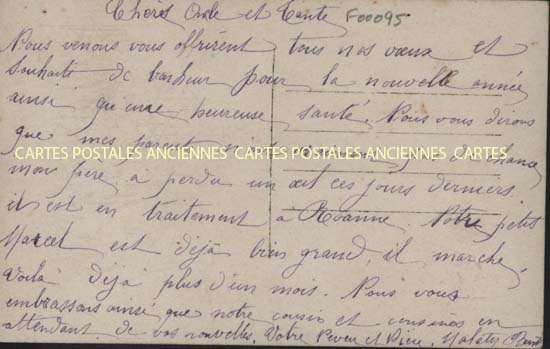 Chers Oncle et Tante F00095
Nous venons vous offrirent tous nos vœux et
Souhaits de bonheur pour la nouvelle année
ainsi qu'une heureuse santé. Nous vous dirons
que mes parents de chance
CARTES POSTALES ANCIENNES CARTES POSTALES ANCIENNES CARTES
mon père a perdu un œil ces jours derniers.
il est en traitement a Roanne. Notre petit
Marcel est déjà bien grand, il marche,
Voila déja plus d'un mois. Nous vous
embrassons ainsi que notre cousin et cousines en
attendant de vos nouvelles. Votre Neveu et Nièce.